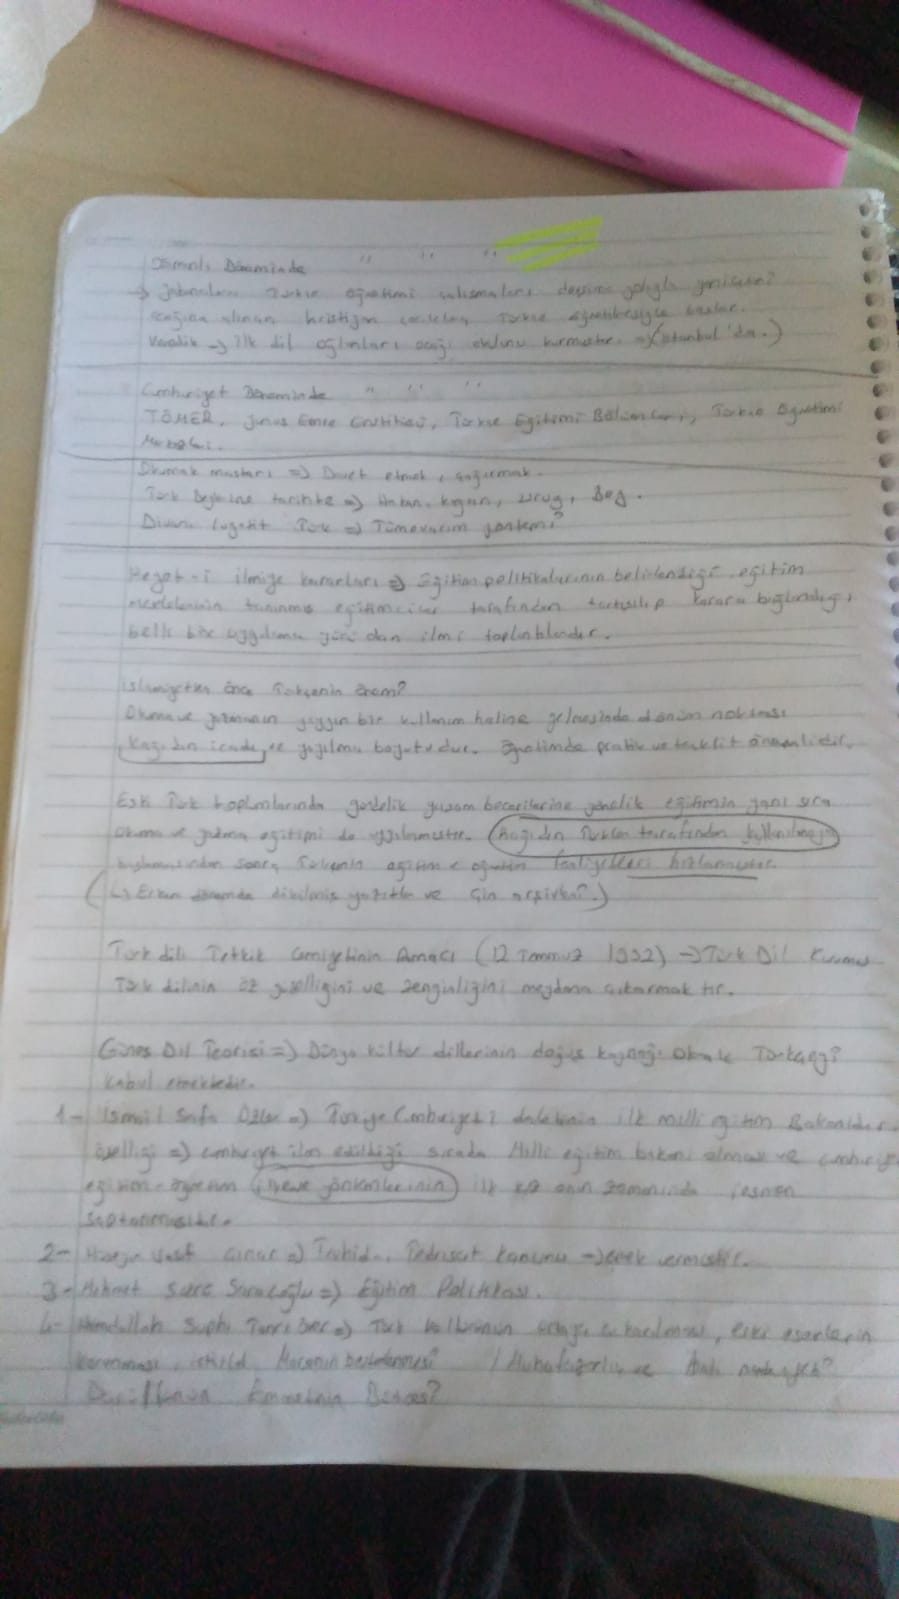 Osmanlı Döneminde " " "
→ Yabancılara Türkçe öğretimi çalışmaları devşirme yoluyla yeniçeri
ocağına alınan hristiyan çocuklara Türkçe öğretilmesiyle başlar.
Venedik → ilk dil oğlanları okulunu kurmuştur. → (İstanbul'da.)
Cumhuriyet Döneminde " " "
TÖMER, Yunus Emre Enstitüsü, Türkçe Eğitimi Bölümleri, Türkçe Öğretimi
Merkezleri.
Okumak mastarı => Davet etmek, çağırmak.
Türk tarihte => Hakan, kağan, uruğ, Beg.
Divanı Lugatit Türk => Tümevarım yöntemi
Heyet-i ilmiye kararları => Eğitim politikalarının belirlendiği, eğitim
meselelerinin tanınmış eğitimciler tarafından tartışılıp karara bağlandığı,
belli bir uygulama yönü olan ilmi toplantılardır.
islamiyetten önce Türkçenin
Okuma ve yazmanın yaygın bir kullanım haline gelmesinde dönüm noktası
kağıdın icadı ve yayılma boyutudur. Öğretimde pratik ve taklit önemlidir.
Eski Türk toplumlarında gündelik yaşam becerilerine yönelik eğitimin yanı sıra
okuma ve yazma eğitimi de uygulanmıştır. Kağıdın Türkler tarafından kullanılmaya
başlamasından sonra Türkçenin eğitim ve öğretim faaliyetleri hızlanmıştır.
(↳ Erken dönemde dikilmiş yazıtlar ve Çin arşivleri.)
Türk dili Tetkik Cemiyetinin Amacı (12 Temmuz 1932) → Türk Dil Kurumu
Türk dilinin öz güzelliğini ve zenginliğini meydana çıkarmak tır.
Güneş Dil Teorisi => Dünya kültür dillerinin doğuş kaynağı olarak Türkçeyi
kabul etmektedir.
1- İsmail Safa Özler => Türkiye Cumhuriyeti devletinin ilk milli eğitim Bakanıdır.
özelliği => cumhuriyet ilan edildiği sırada Milli eğitim bakanı olması ve cumhuriyet
eğitim-öğretim ilke ve yönlerinin ilk kez onun zamanında resmen
saptanmasıdır.
2- Hüseyin Vasıf Çınar => Tevhid-i Tedrisat kanunu → emek vermiştir.
3- Mehmet Şükrü Saraçoğlu => Eğitim Politikası.
4- Hamdullah Suphi Tanrıöver => Türk kültürünün ortaya çıkarılması, eski eserlerin
korunması, istiklal Marşının belirlenmesi